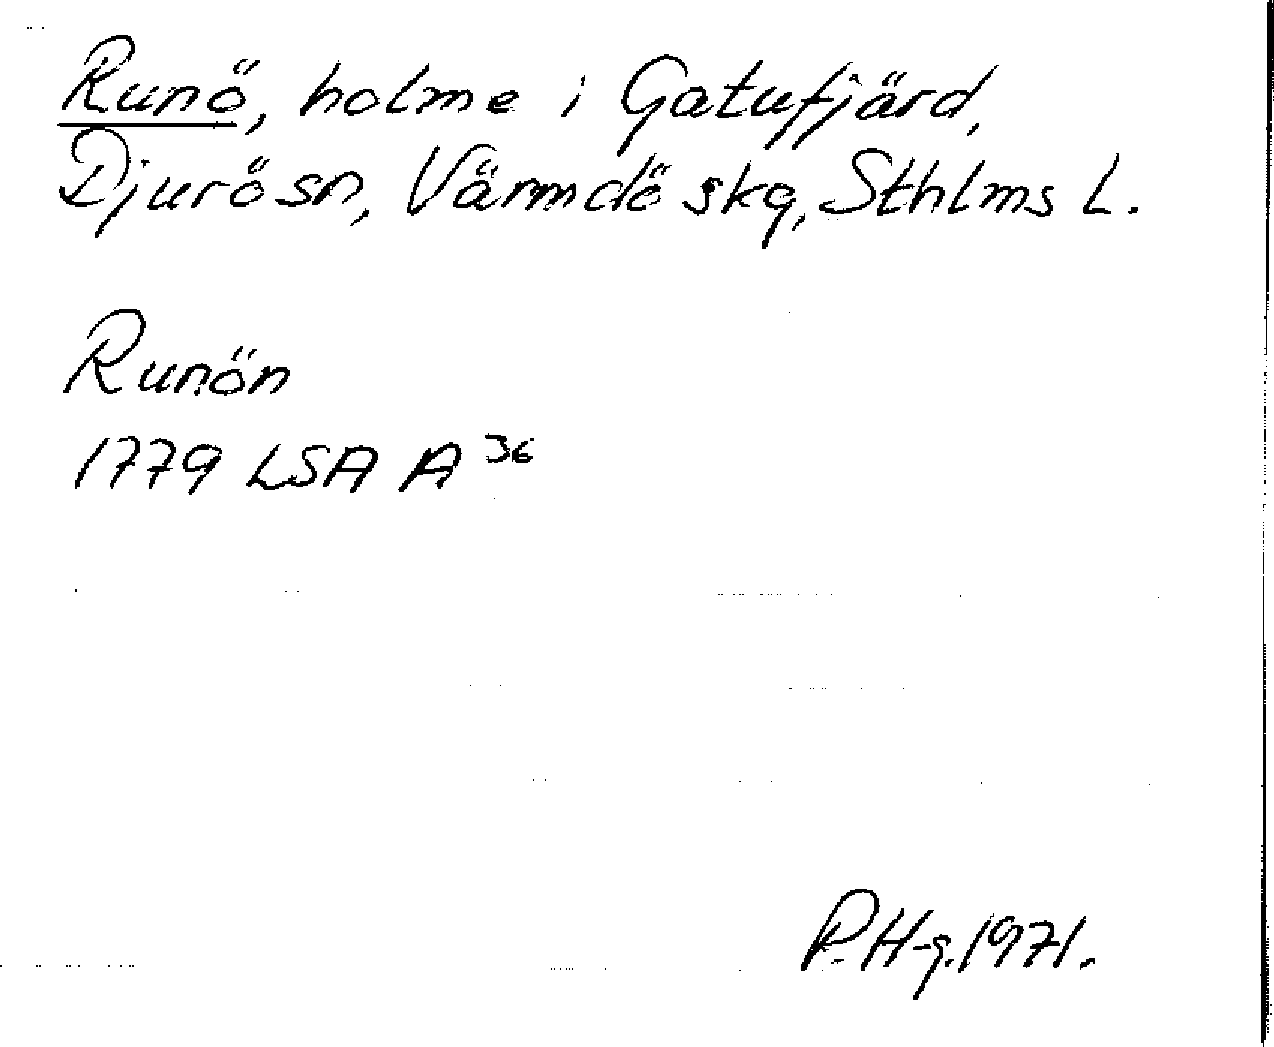 Runö, holme i Gatufjärd,
Djurö sn, Värmdö skg, Sthlms L.
Runön
1779 LSA A 36
P. H-g. 1971.